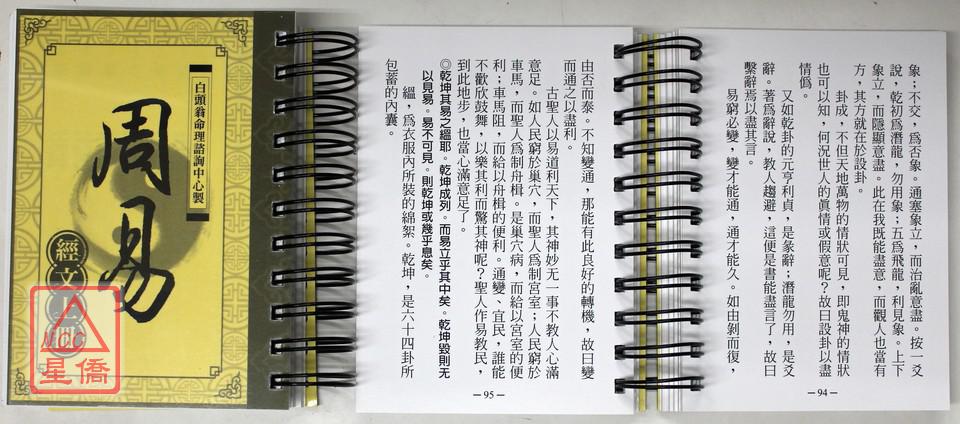 白頭翁命理諮詢中心製
周易
經文上冊
NCC
星僑
由否而泰。不知變通，那能有此良好的轉機，故曰變
而通之以盡利。
古聖人以易道利天下，其神妙无一事不教人人心滿
意足。如人民窮於巢穴，而聖人爲制宮室；人民窮於
車馬，而聖人爲制舟楫。是巢穴病，而給以宮室的便
利；車馬阻，而給以舟楫的便利。通變、宜民，誰能
不歡欣鼓舞，以樂其利而驚其神呢？聖人作易教民，
到此地步，也當心滿意足了。
◎乾坤其易之縕耶。乾坤成列。而易立乎其中矣。乾坤毀則无
以見易。易不可見。則乾坤或幾乎息矣。
縕，爲衣服內所裝的綿絮。乾坤，是六十四卦所
包蓄的內囊。
—95—
象；不交，爲否象。通塞象立，而治亂意盡。按一爻
說，乾初爲潛龍，勿用象；五爲飛龍，利見象。上下
象立，而隱顯意盡。此在我既能盡意，而觀人也當有
方，其方就在於設卦。
卦成，不但天地萬物的情狀可見，即鬼神的情狀
也可以知，何況世人的眞情或假意呢？故曰設卦以盡
情僞。
又如乾卦的元亨利貞，是彖辭；潛龍勿用，是爻
辭。著爲辭說，教人趨避，這便是書能盡言了，故曰
繫辭焉以盡其言。
易窮必變，變才能通，通才能久。如由剝而復，
—94—